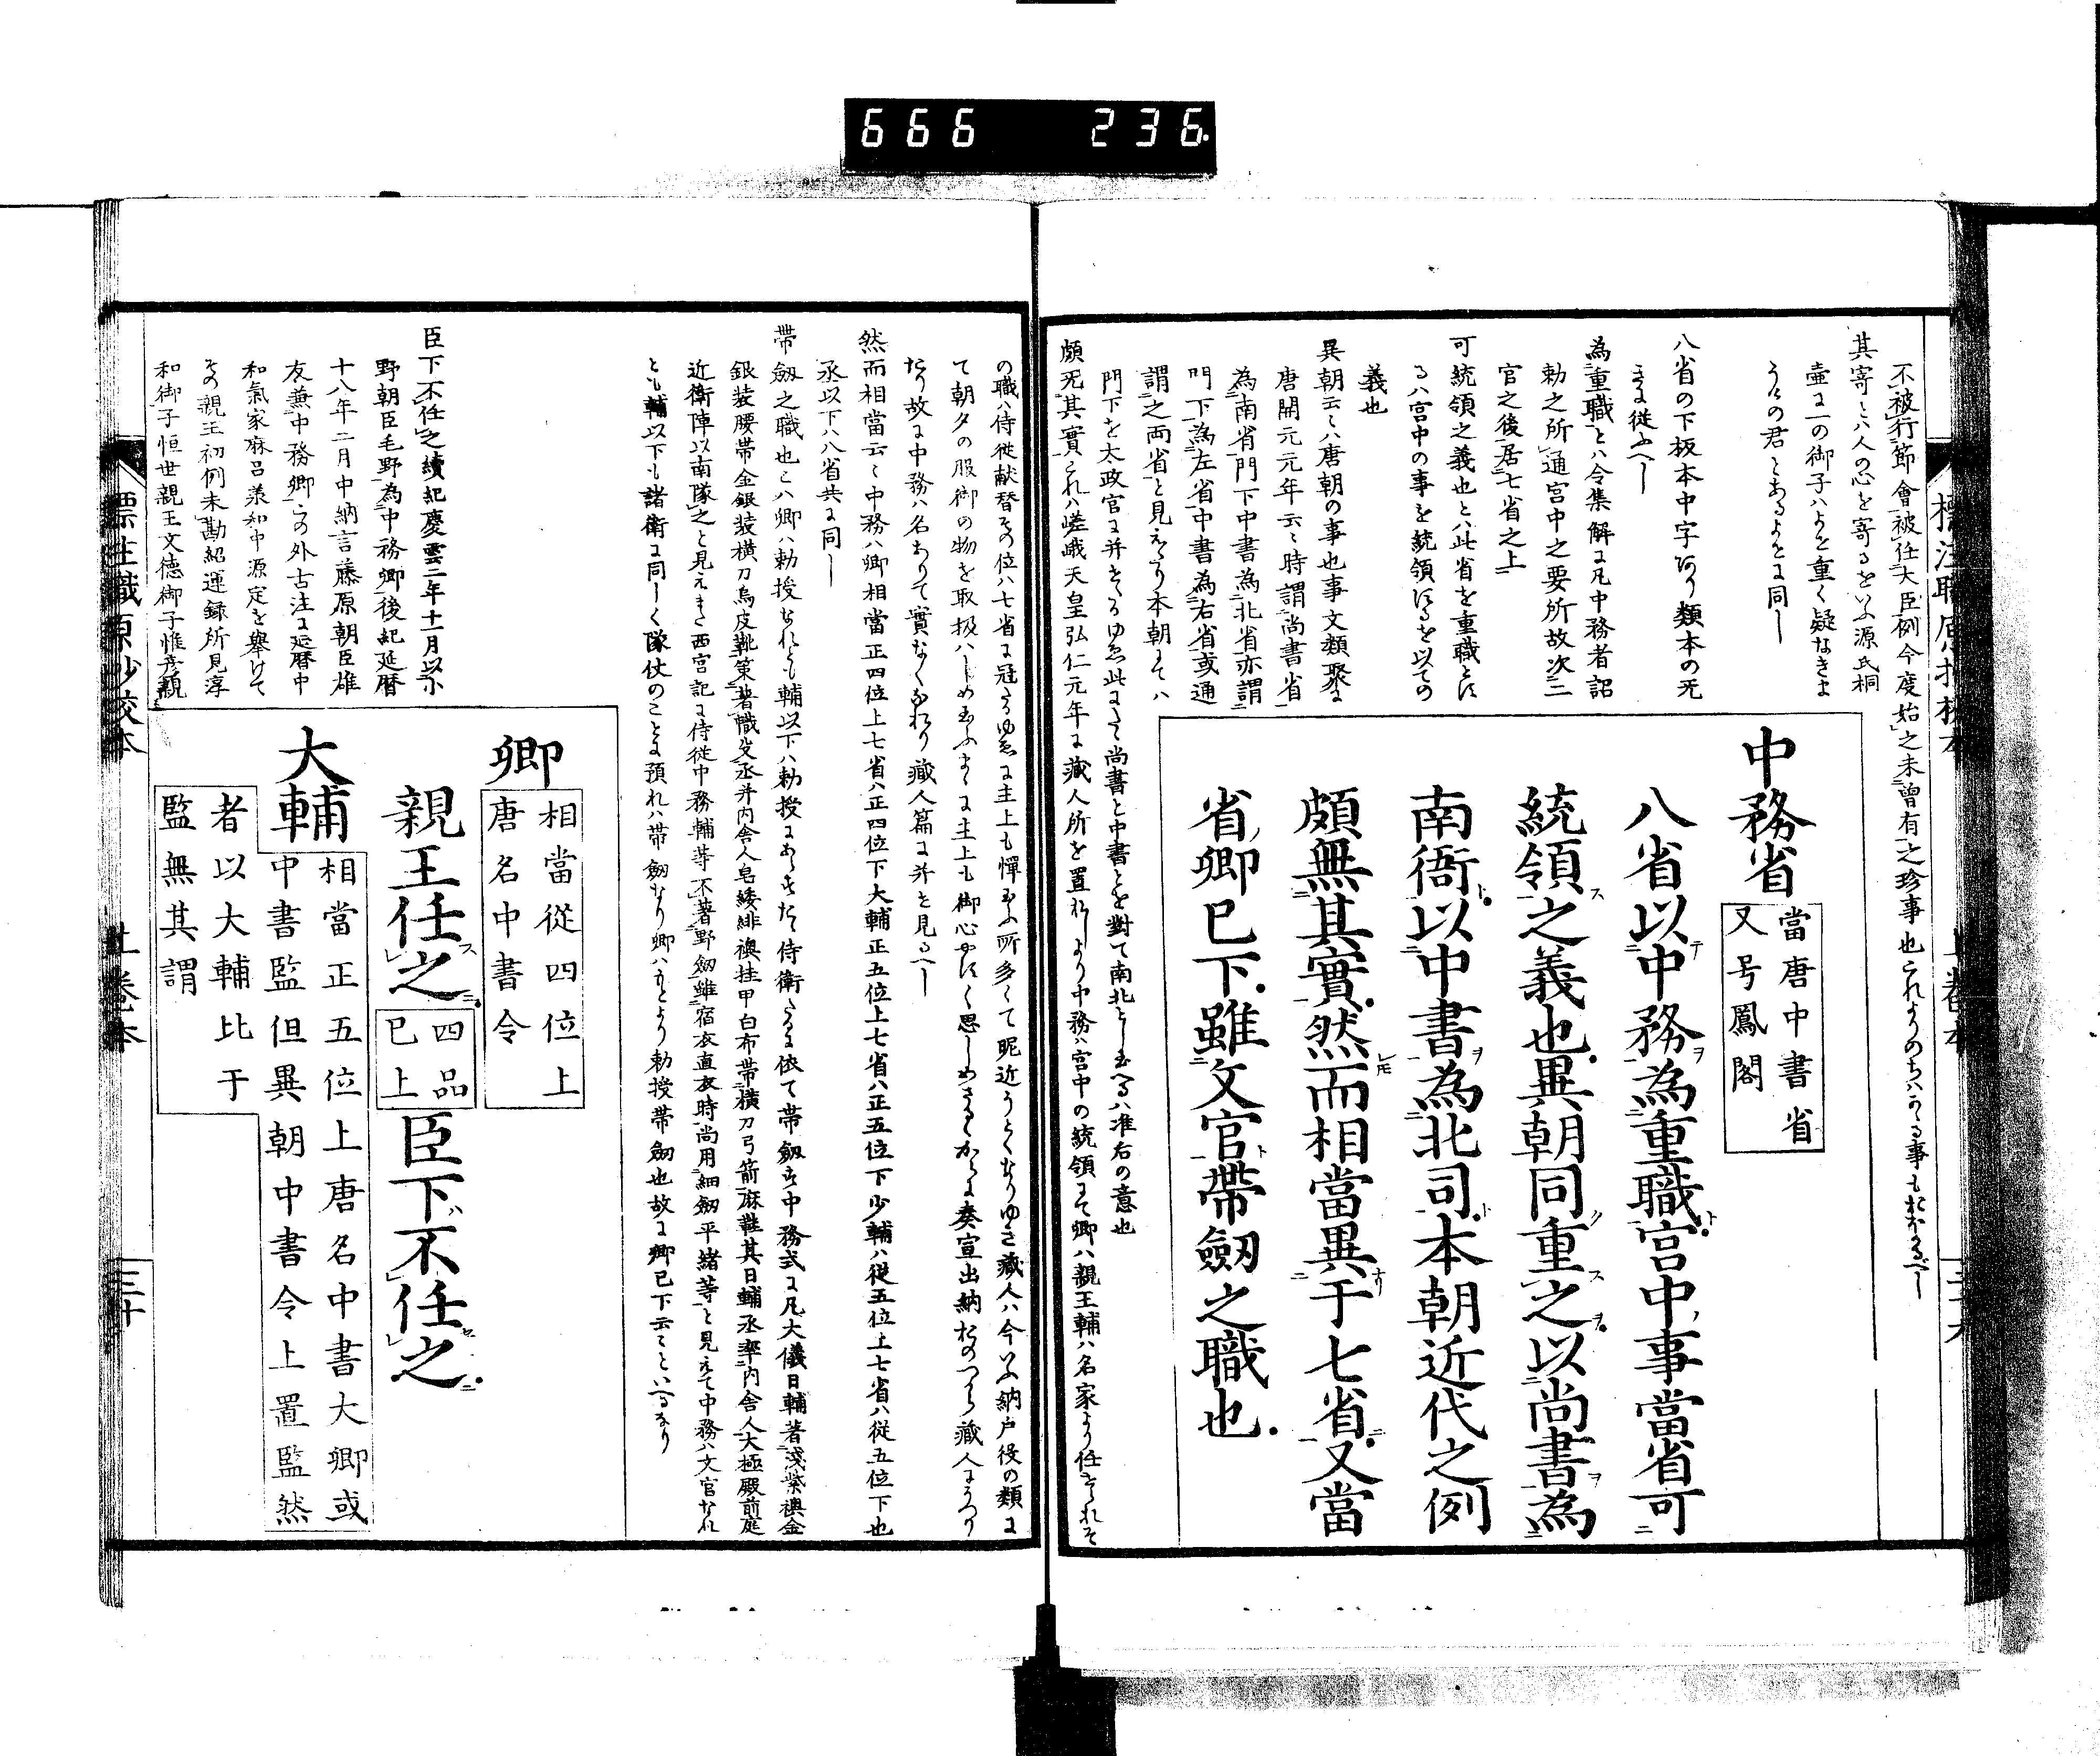 666 236.
不被行節會被任大臣例今度始之未曾有之珍事也
其寄とハ人の心を寄るをいふ源氏桐
壷に一の御子ハよせ重く疑なきま
うけの君とあるよせに同し
八省の下板本中字あり類本の无
きに従ふへし
為重職とハ令集解に凡中務者詔
勅之所通宮中之要所故次二
官之後居七省之上
可統領之義也とハ此省を重職とす
るハ宮中の事を統領するを以ての
義也
異朝云々ハ唐朝の事也事文類聚に
唐開元元年云々時謂尚書省
為南省門下中書為北省亦謂
門下為左省中書為右省或通
謂之両省と見えたり本朝にてハ
門下を太政官に并せたるゆゑ此にたゝ尚書と中書とを對て南北とし玉へるハ准右の意也
頗无其實これハ嵯峨天皇弘仁元年に藏人所を置れしより中務ハ宮中の統領にて卿ハ親王輔ハ名家より任せられそ
中務省
當唐中書省
又号鳳閣
八省以中務為重職宮中事當省可
統領之義也異朝同重之以尚書為
南衙以中書為北司本朝近代之例
頗無其實然而相當異于七省又當
省卿已下雖文官帶劔之職也
の職ハ侍従献替その位ハ七省に冠たるゆゑに主上も憚玉ふ所多くて昵近うとくなりゆき藏人ハ今いふ納戸役の類に
て朝夕の服御の物を取扱ハしめ玉ふまゝに主上も御心やすく思しめさるゝからに奏宣出納ものつから藏人にうつり
たり故に中務ハ名ありて實なくなれり藏人篇に并せ見るへし
然而相當云々中務ハ卿相當正四位上七省ハ正四位下大輔正五位上七省ハ正五位下少輔ハ従五位上七省ハ従五位下也
丞以下ハ八省共に同し
帶劔之職也とハ卿ハ勅授なれとも輔以下ハ勅授にあらすたゝ侍衛たるに依て帶劔す中務式に凡大儀日輔著淺紫襖金
銀装腰帶金銀装横刀烏皮靴策著幟殳丞并内舎人皂緌緋襖挂甲白布帶横刀弓箭麻鞋其日輔丞率内舎人大極殿前庭
近衛陣以南隊之と見えまた西宮記に侍従中務輔等不著野劔雖宿衣直衣時尚用細劔平緒等と見えて中務ハ文官なれ
とも輔以下も諸衛に同しく隊仗のことに預れハ帶劔なり卿ハもとより勅授帶劔也故に卿已下云々といへるなり
臣下不任之續紀慶雲二年十一月以小
野朝臣毛野為中務卿後紀延暦
十八年二月中納言藤原朝臣雄
友兼中務卿この外古注に延暦中
和氣家麻呂羕和中源定を擧けて
その親王初例未勘紹運録所見淳
和御子恒世親王文徳御子惟彦親
卿
相當從四位上
唐名中書令
親王任之
四品
已上
臣下不任之
大輔
相當正五位上唐名中書大卿或
中書監但異朝中書令上置監然
者以大輔比于
監無其謂
標注職原抄校本 上巻本 三十